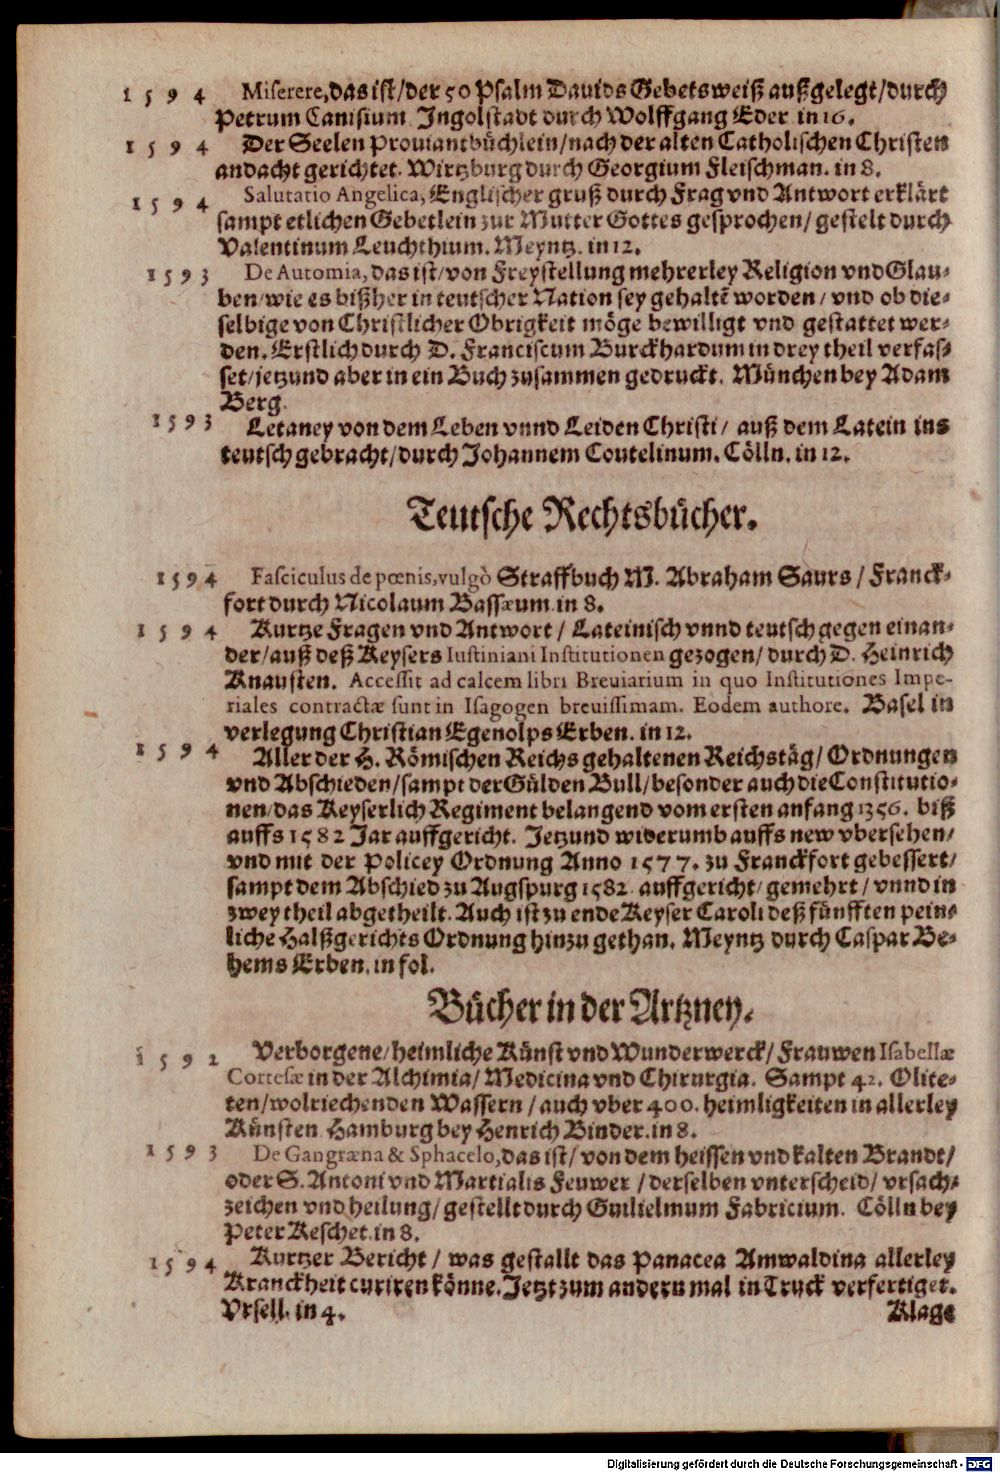 1594 Miserere, das ist/ der 50 Psalm Dauids Gebetsweiß außgelegt/ durch
Petrum Canisium Ingolstadt durch Wolffgang Eder in 16.
1594 Der Seelen Prouiantbüchlein/ nach der alten Catholischen Christen
andacht gerichtet. Wirtzburg durch Georgium Fleischman. in 8.
1594 Salutatio Angelica, Englischer gruß durch Frag vnd Antwort erklärt
sampt etlichen Gebetlein zur Mutter Gottes gesprochen/ gestelt durch
Valentinum Leuchthium. Meyntz. in 12.
1593 De Automia, das ist/ von Freystellung mehrerley Religion vnd Glau-
ben/ wie es bißher in teutscher Nation sey gehaltẽ worden/ vnd ob die-
selbige von Christlicher Obrigkeit möge bewilligt vnd gestattet wer-
den. Erstlich durch D. Franciscum Burckhardum in drey theil verfas-
set/ jetzund aber in ein Buch zusammen gedruckt. München bey Adam
Berg.
1593 Letaney von dem Leben vnnd Leiden Christi/ auß dem Latein ins
teutsch gebracht/ durch Johannem Coutelinum. Cölln. in 12.
Teutsche Rechtsbücher.
1594 Fasciculus de pœnis, vulgò Straffbuch M. Abraham Saurs/ Franck-
fort durch Nicolaum Bassæum in 8.
1594 Kurtze Fragen vnd Antwort/ Lateinisch vnnd teutsch gegen einan-
der/ auß deß Keysers Iustiniani Institutionen gezogen/ durch D. Heinrich
Knausten. Accessit ad calcem libri Breuiarium in quo Institutiones Impe-
riales contractæ sunt in Isagogen breuissimam. Eodem authore. Basel in
verlegung Christian Egenolps Erben. in 12.
1594 Aller der H. Römischen Reichs gehaltenen Reichstäg/ Ordnungen
vnd Abschieden/ sampt der Gülden Bull/ besonder auch die Constitutio-
nen/ das Keyserlich Regiment belangend vom ersten anfang 1356. biß
auffs 1582 Jar auffgericht. Jetzund widerumb auffs new vbersehen/
vnd mit der Policey Ordnung Anno 1577. zu Franckfort gebessert/
sampt dem Abschied zu Augspurg 1582 auffgericht/ gemehrt/ vnnd in
zwey theil abgetheilt. Auch ist zu ende Keyser Caroli deß fünfften pein-
liche Halßgerichts Ordnung hinzu gethan. Meyntz durch Caspar Be-
hems Erben. in fol.
Bücher in der Artzney.
1592 Verborgene/ heimliche Künst vnd Wunderwerck/ Frauwen Isabellæ
Cortesæ in der Alchimia/ Medicina vnd Chirurgia. Sampt 42. Olite-
ten/ wolriechenden Wassern/ auch vber 400. heimligkeiten in allerley
Künsten Hamburg bey Henrich Binder. in 8.
1593 De Gangræna & Sphacelo, das ist/ von dem heissen vnd kalten Brandt/
oder S. Antoni vnd Martialis Feuwer/ derselben vnterscheid/ vrsach/
zeichen vnd heilung/ gestellt durch Guilielmum Fabricium. Cölln bey
Peter Keschet. in 8.
1594 Kurtzer Bericht/ was gestallt das Panacea Amwaldina allerley
Kranckheit curiren könne. Jetzt zum andern mal in Truck verfertiget.
Vrsell. in 4. Klage
Digitalisierung gefördert durch die Deutsche Forschungsgemeinschaft - DFG